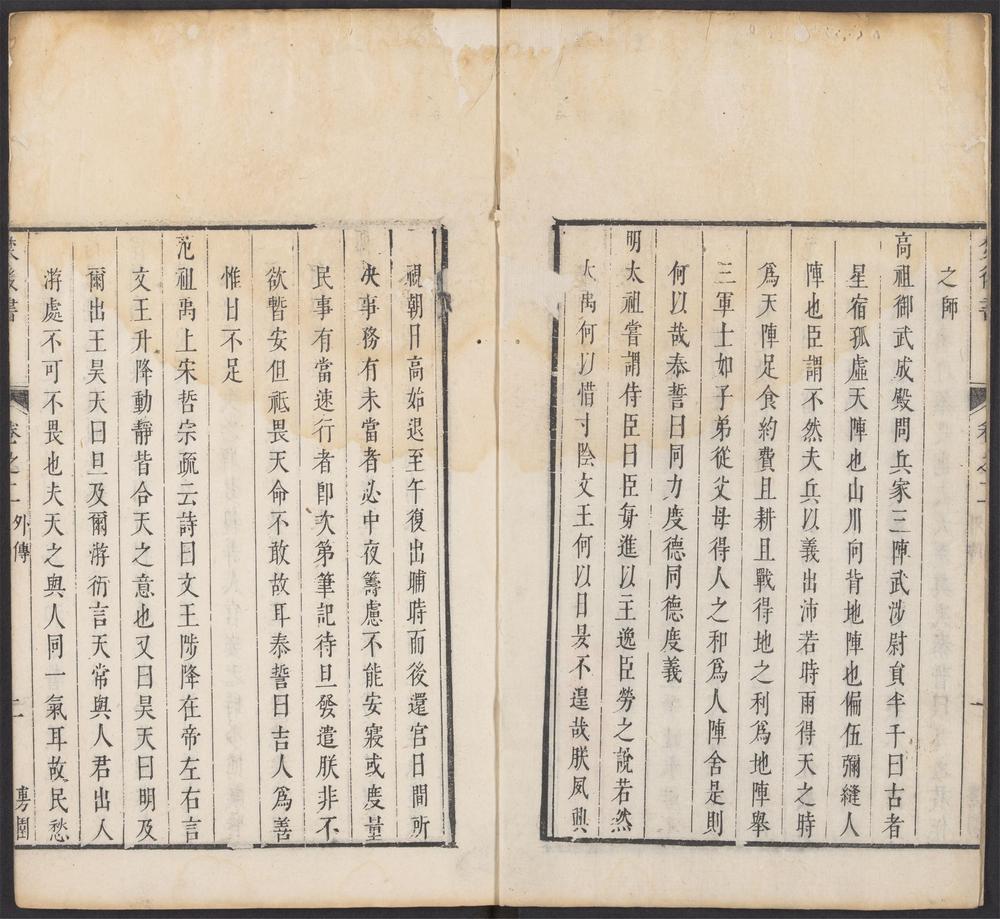 之師
高祖御武成殿問兵家三陣武涉尉員半千曰古者
星宿孤虛天陣也山川向背地陣也偏伍彌縫人
陣也臣謂不然夫兵以義出沛若時雨得天之時
為天陣足食約費且耕且戰得地之利為地陣舉
三軍士如子弟從父母得人之和為人陣舍是則
何以哉泰誓曰同力度德同德度義
明太祖嘗謂侍臣曰臣每進以主逸臣勞之說若然
大禹何以惜寸陰文王何以日昃不遑哉朕夙興
視朝日高始退至午復出晡時而後還宮日間所
決事務有未當者必中夜籌慮不能安寢或度量
民事有當速行者即次第筆記待旦發遣朕非不
欲暫安但祗畏天命不敢故耳泰誓曰吉人為善
惟日不足
范祖禹上宋哲宗疏云詩曰文王陟降在帝左右言
文王升降動靜皆合天之意也又曰昊天曰明及
爾出王昊天曰旦及爾游衍言天常與人君出入
游處不可不畏也夫天之與人同一氣耳故民愁
焚後書
卷之二
外傳
二
粤園